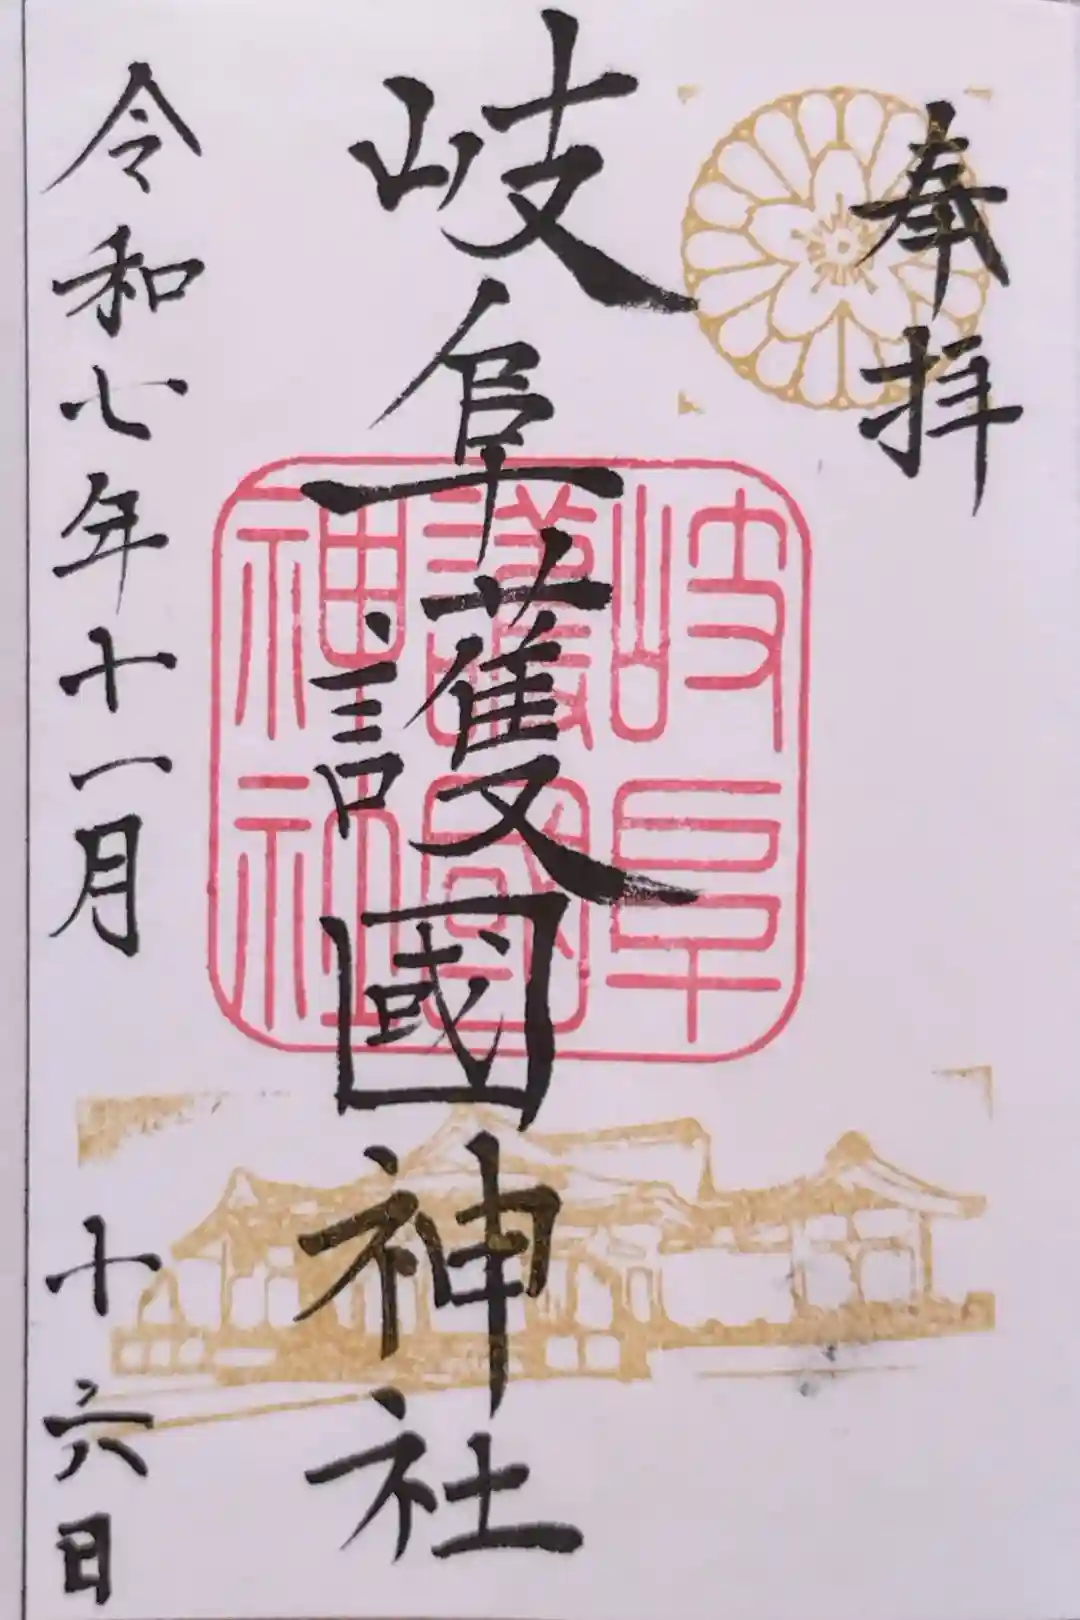 奉拝
岐阜護國神社
岐阜
護國
神社
令和七年十一月十六日